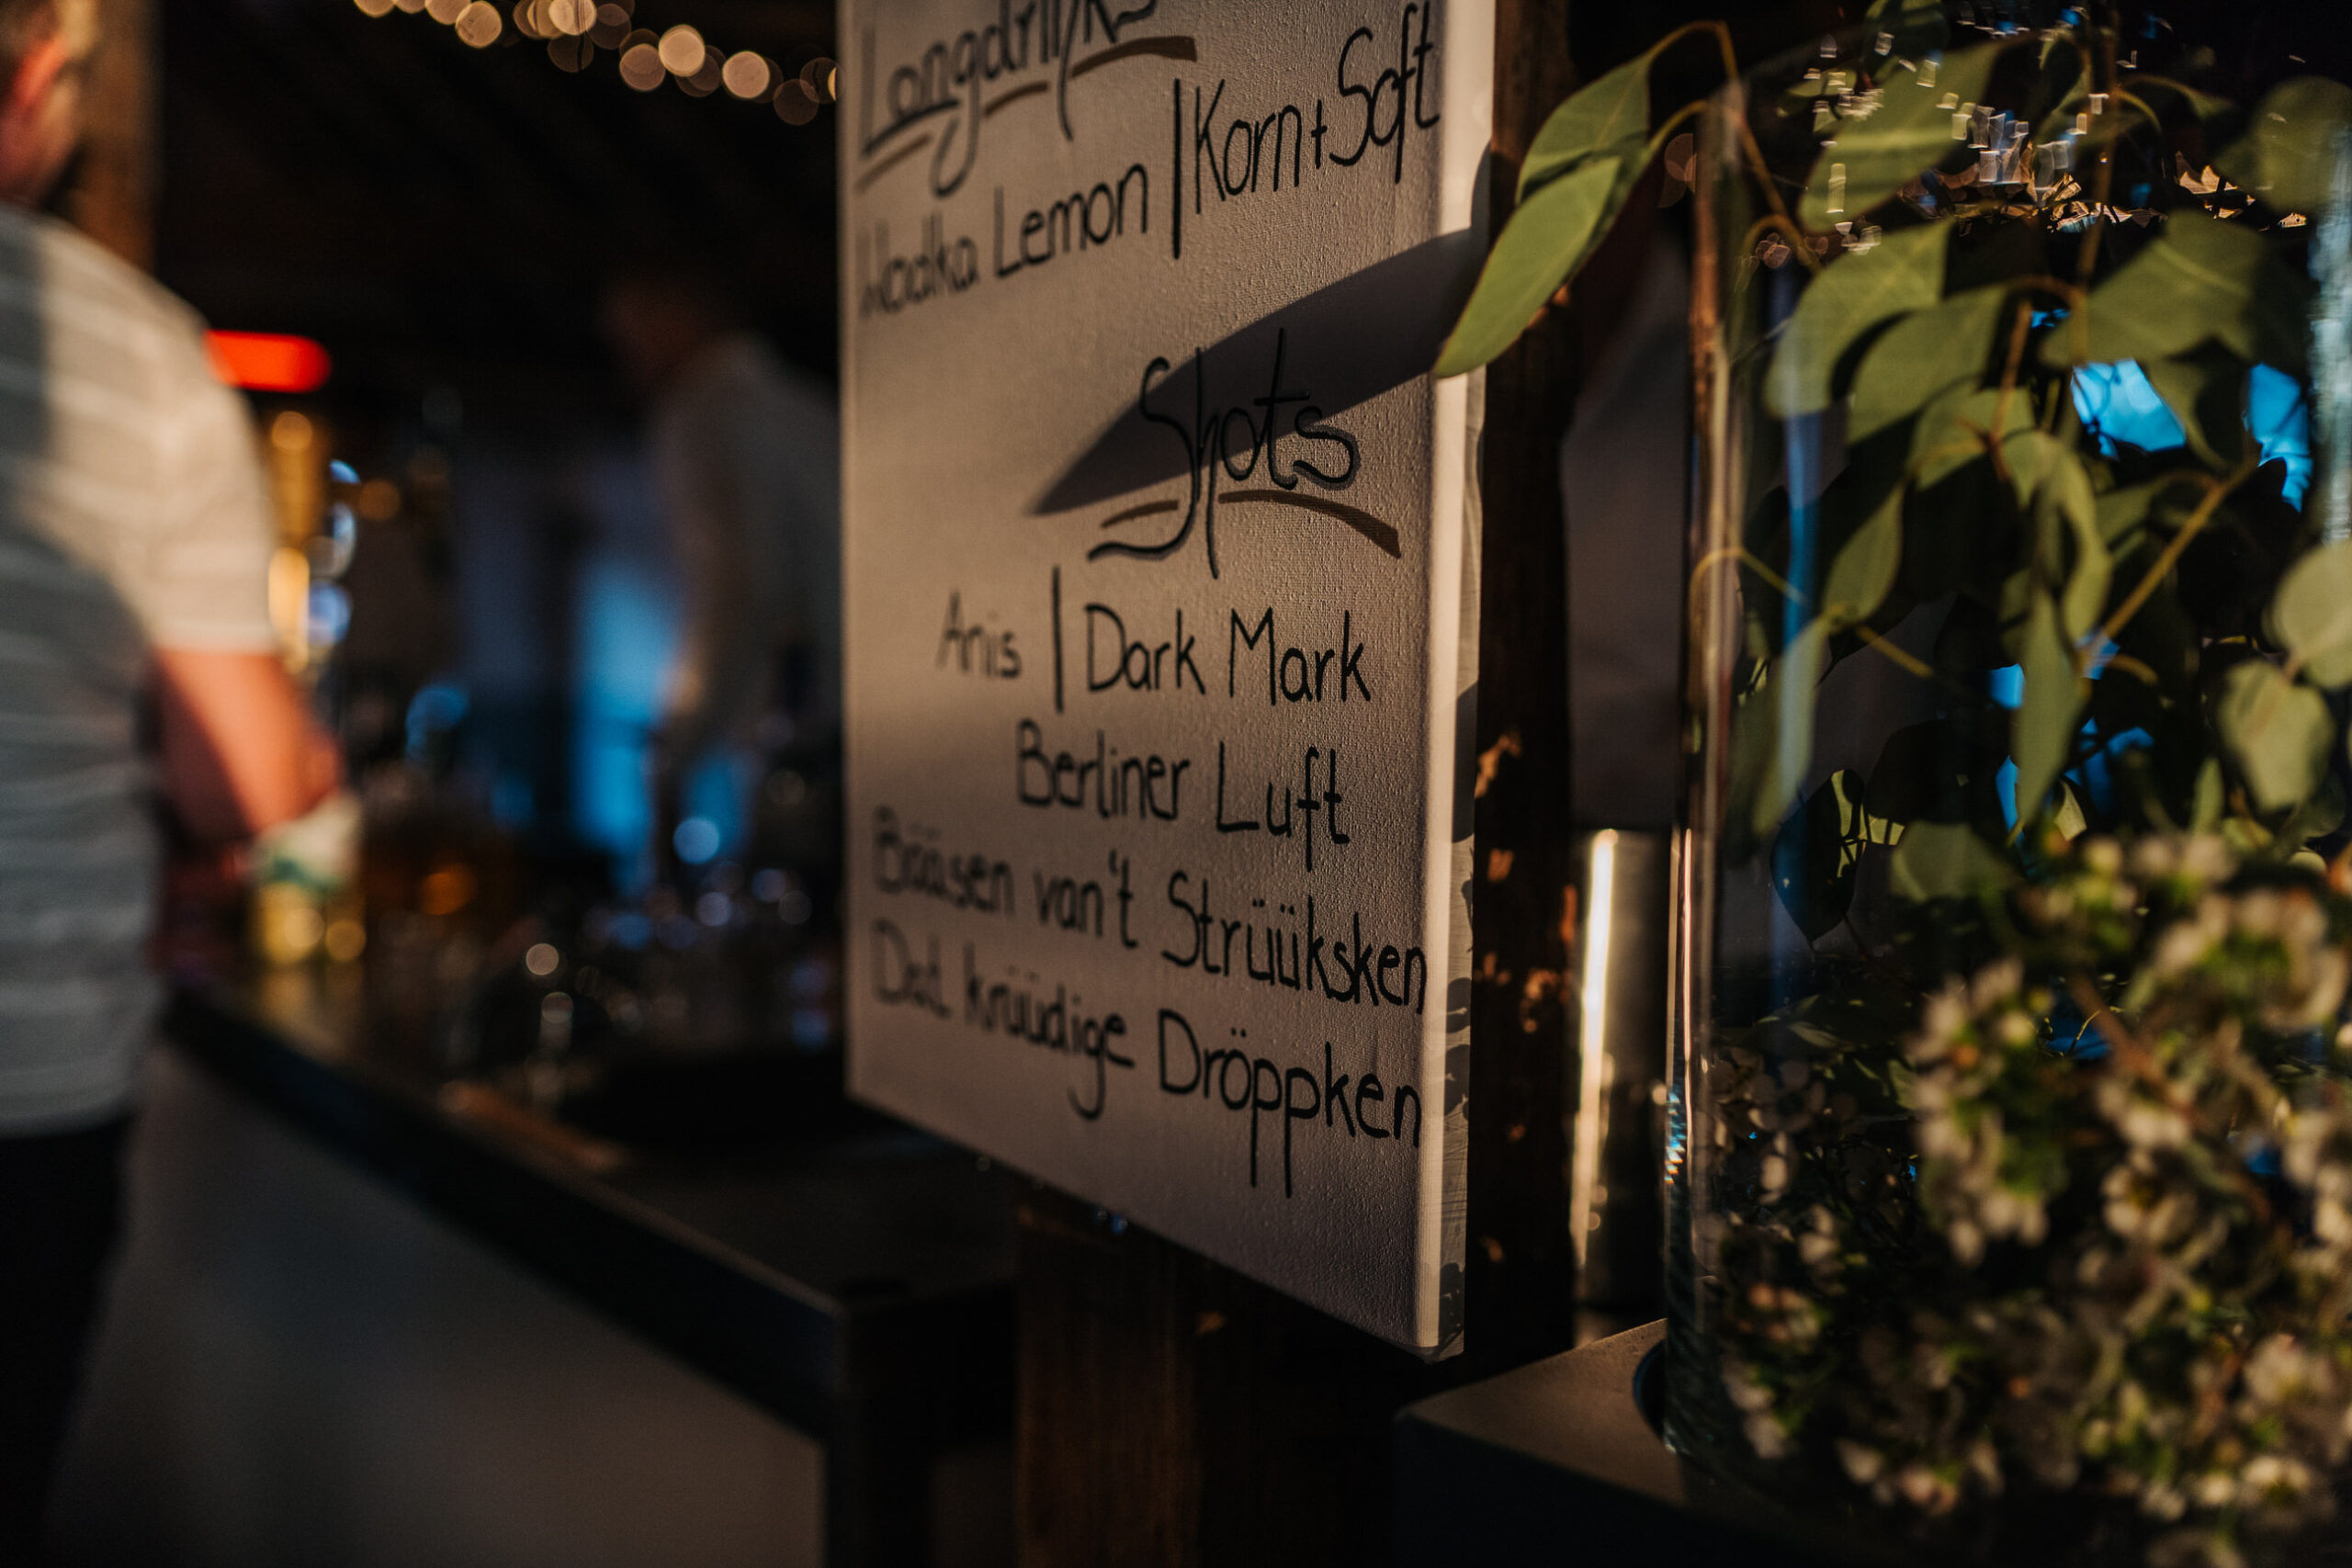 Longdrinks
Wodka Lemon | Korn + Saft
Shots
Anis | Dark Mark
Berliner Luft
Bääsen van't Strüüksken
Dat krüüdige Dröppken